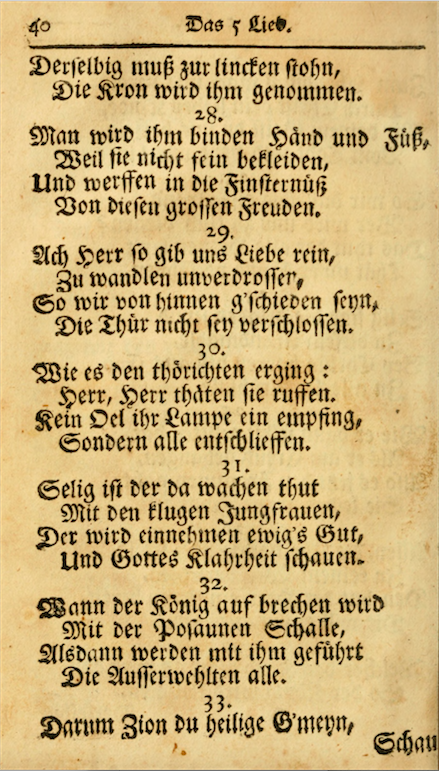 40 Das 5 Lied.
Derselbig muß zur lincken stohn,
Die Kron wird ihm genommen.
28.
Man wird ihm binden Händ und Füß,
Weil sie nicht fein bekleiden,
Und werffen in die Finsternüß
Von diesen grossen Freuden.
29.
Ach Herr so gib uns Liebe rein,
Zu wandlen unverdrossen,
So wir von hinnen g'schieden seyn,
Die Thür nicht sey verschlossen.
30.
Wie es den thörichten erging:
Herr, Herr thäten sie ruffen.
Kein Oel ihr Lampe ein empfing,
Sondern alle entschlieffen.
31.
Selig ist der da wachen thut
Mit den klugen Jungfrauen,
Der wird einnehmen ewig's Gut,
Und Gottes Klahrheit schauen.
32.
Wann der König auf brechen wird
Mit der Posaunen Schalle,
Alsdann werden mit ihm geführt
Die Ausserwehlten alle.
33.
Darum Zion du heilige G'meyn,
Schau